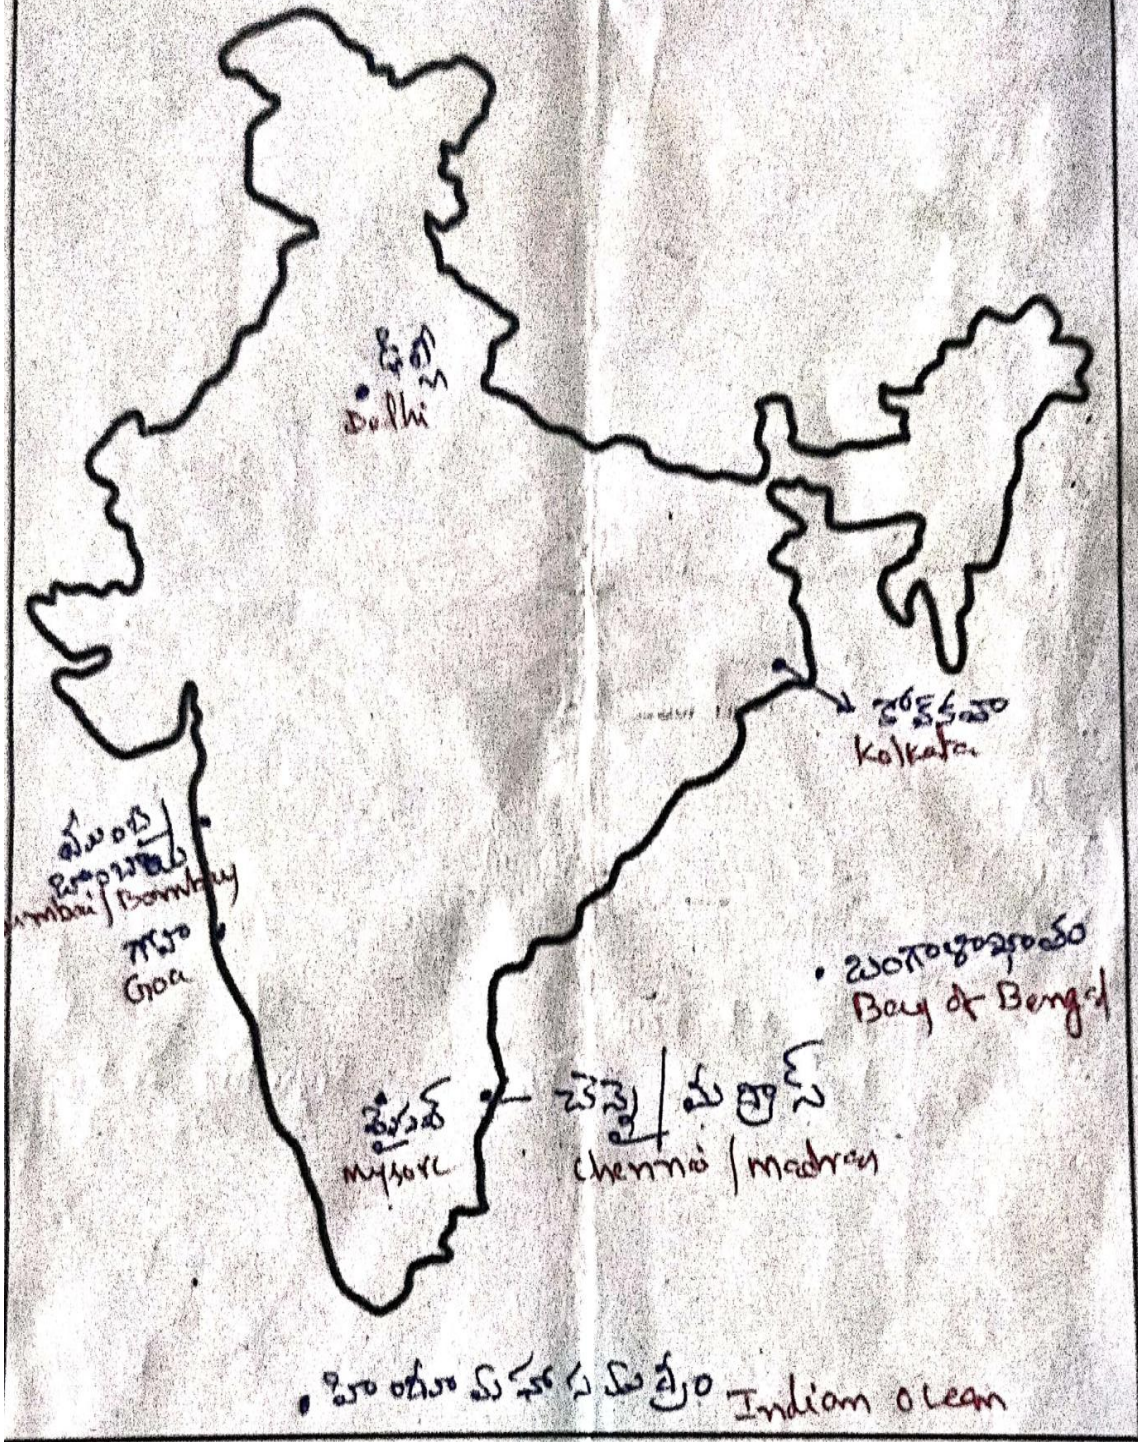 ఢిల్లీ
Delhi
కోల్‌కతా
Kolkata
ముంబై/
బొంబాయి
umbai/Bombay
గోవా
Goa
బంగాళాఖాతం
Bay of Bengal
చెన్నై/మద్రాస్
Chennai/madras
మైసూర్
mysore
హిందూ మహా సముద్రం Indian Ocean